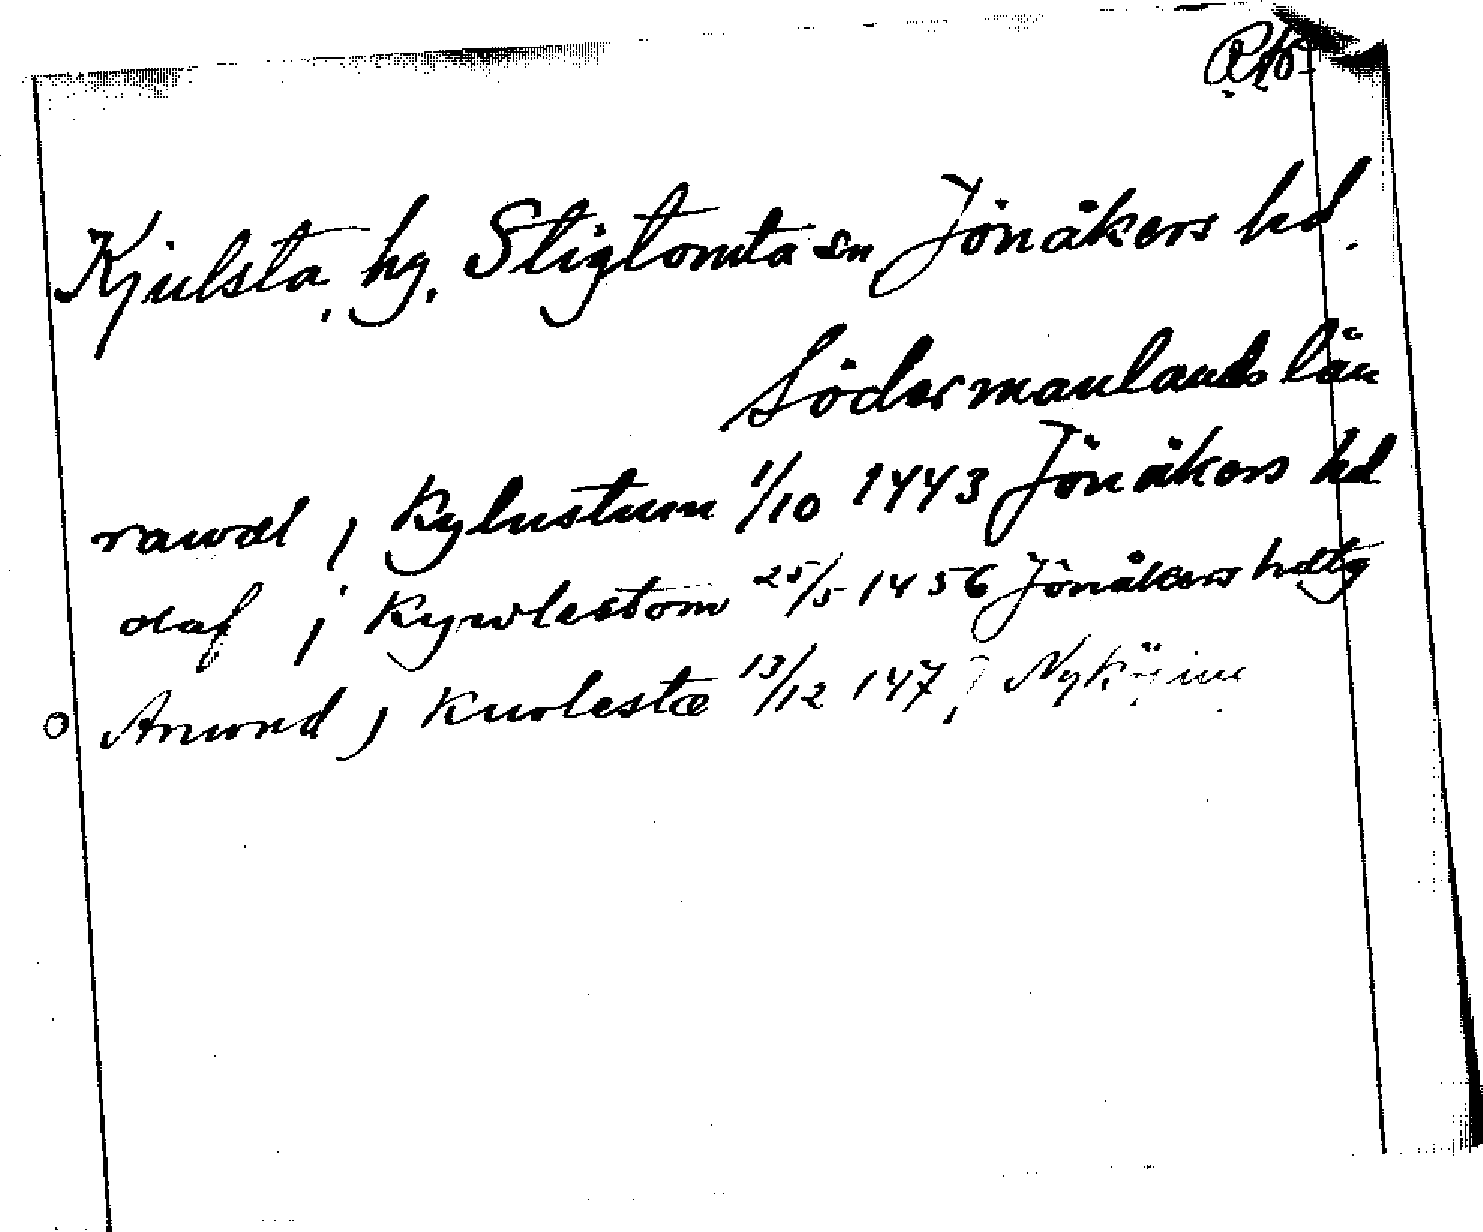 Kjulsta, hg. Stigtomta sn Jönåkers hd.
Södermanlands län
rawæl j Kylustum 1/10 1443 Jönåkers hd
olaf j Kywlestom 25/5 1456 Jönåkers hdtg
o Anwnd j Kwlestæ 13/12 147